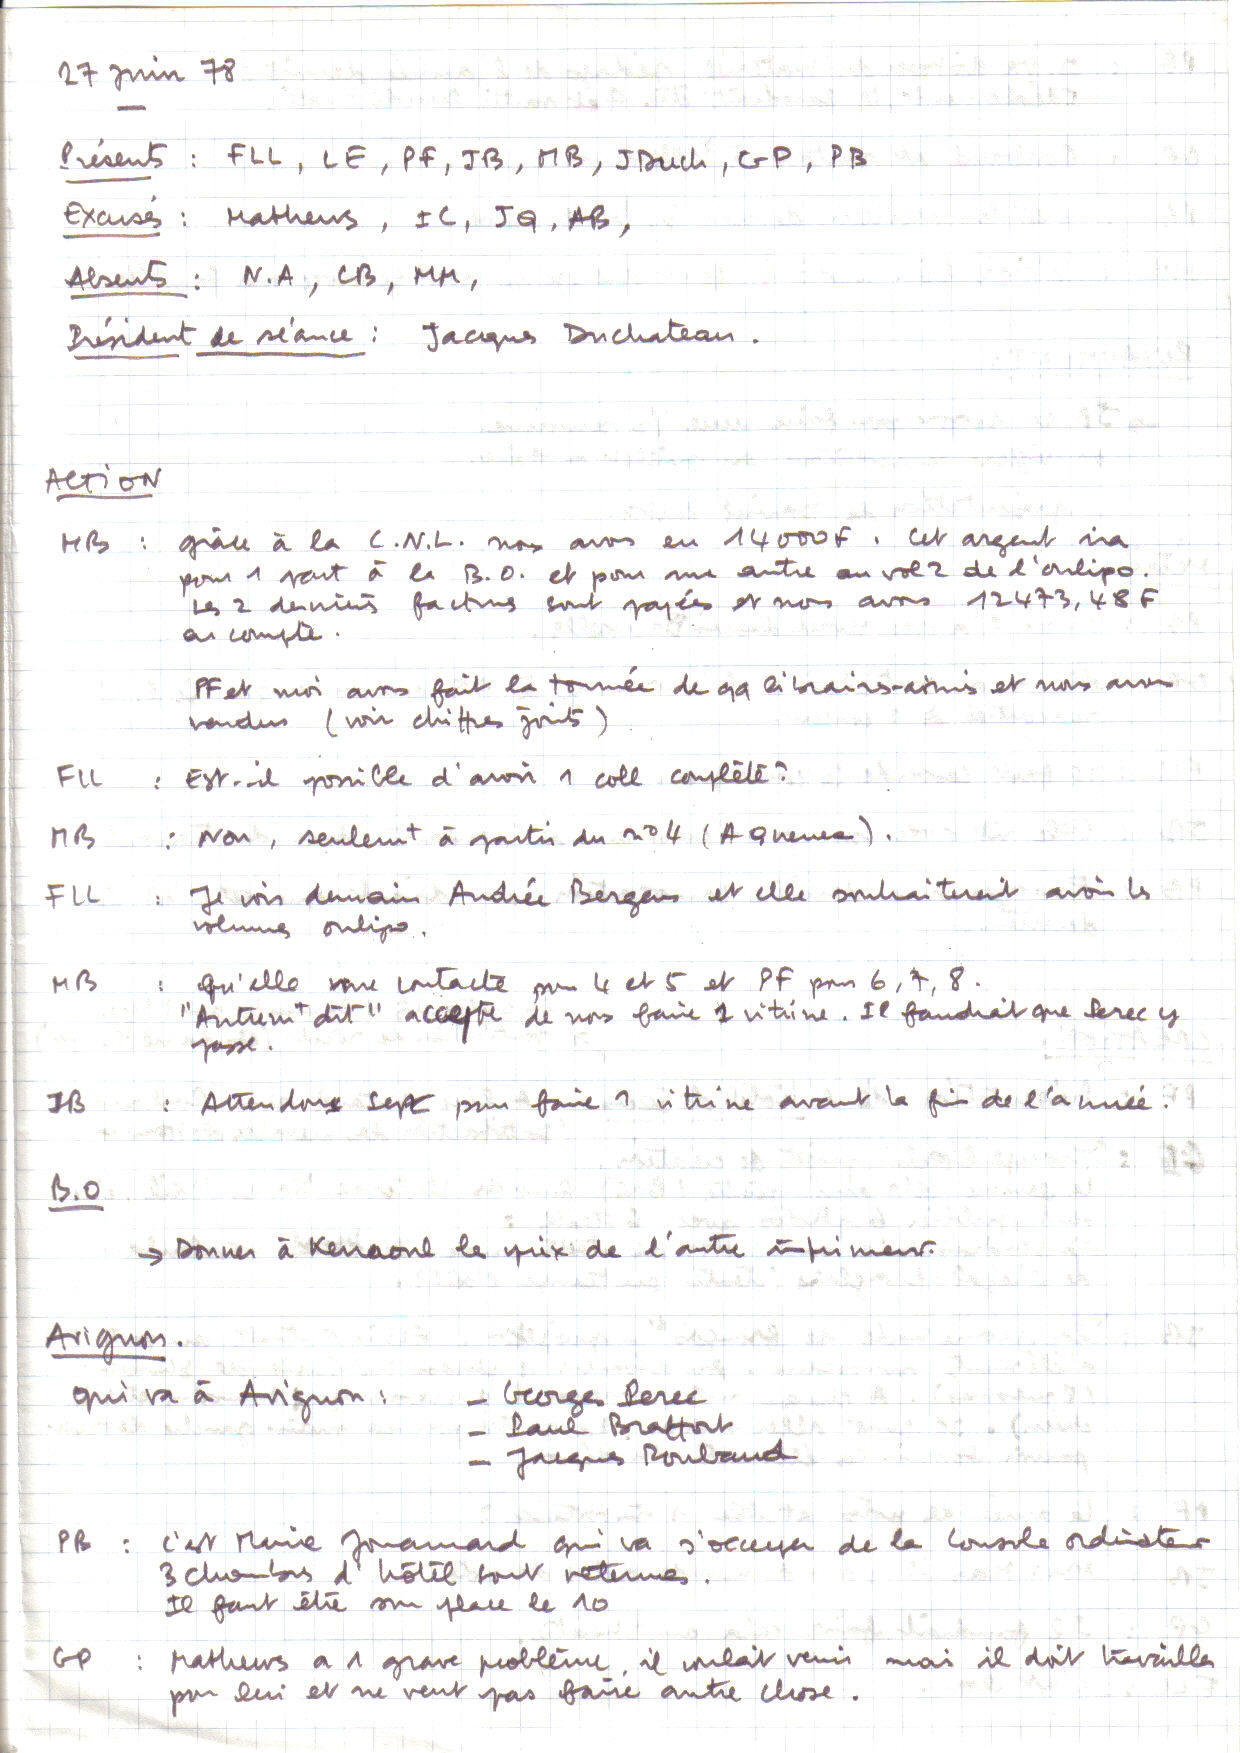 27 juin 78
Présents : FLL, LE, PF, JB, MB, JDuch, GP, PB
Excusés : Mathews, IC, JQ, AB,
Absents : N.A, CB, MM,
Président de séance : Jacques Duchateau.
ACTION
MB : grâce à la C.N.L. nous avons eu 14000F. Cet argent ira
pour 1 part à la B.O. et pour une autre au vol 2 de l'oulipo.
Les 2 derniers factures sont payées et nous avons 12473,48F
en compte.
PF et moi avons fait la tournée de qq libraires-amis et nous avons
vendus (voir chiffres joints)
FLL : Est-il possible d'avoir 1 coll complète?
MB : Non, seulemt à partir du n°4 (A Queneau).
FLL : Je vois demain Andrée Bergens et elle souhaiterait avoir les
volumes oulipo.
MB : qu'elle me contacte pour 4 et 5 et PF pour 6, 7, 8.
"Autremt dit" accepte de nous faire 1 vitrine. Il faudrait que Perec y
passe.
JB : Attendons sept pour faire 1 vitrine avant la fin de l'année.
B.O
→ Donner à Kerraoul le prix de l'autre imprimeur.
Avignon.
qui va à Avignon : - Georges Perec
- Paul Braffort
- Jacques Roubaud
PB : C'est Marie Jouannard qui va s'occuper de la console ordinateur
3 chambres d'hôtel sont retenues.
Il faut être sur place le 10
GP : Mathews a 1 grave problème, il voulait venir mais il doit travailler
pour lui et ne veut pas faire autre chose.